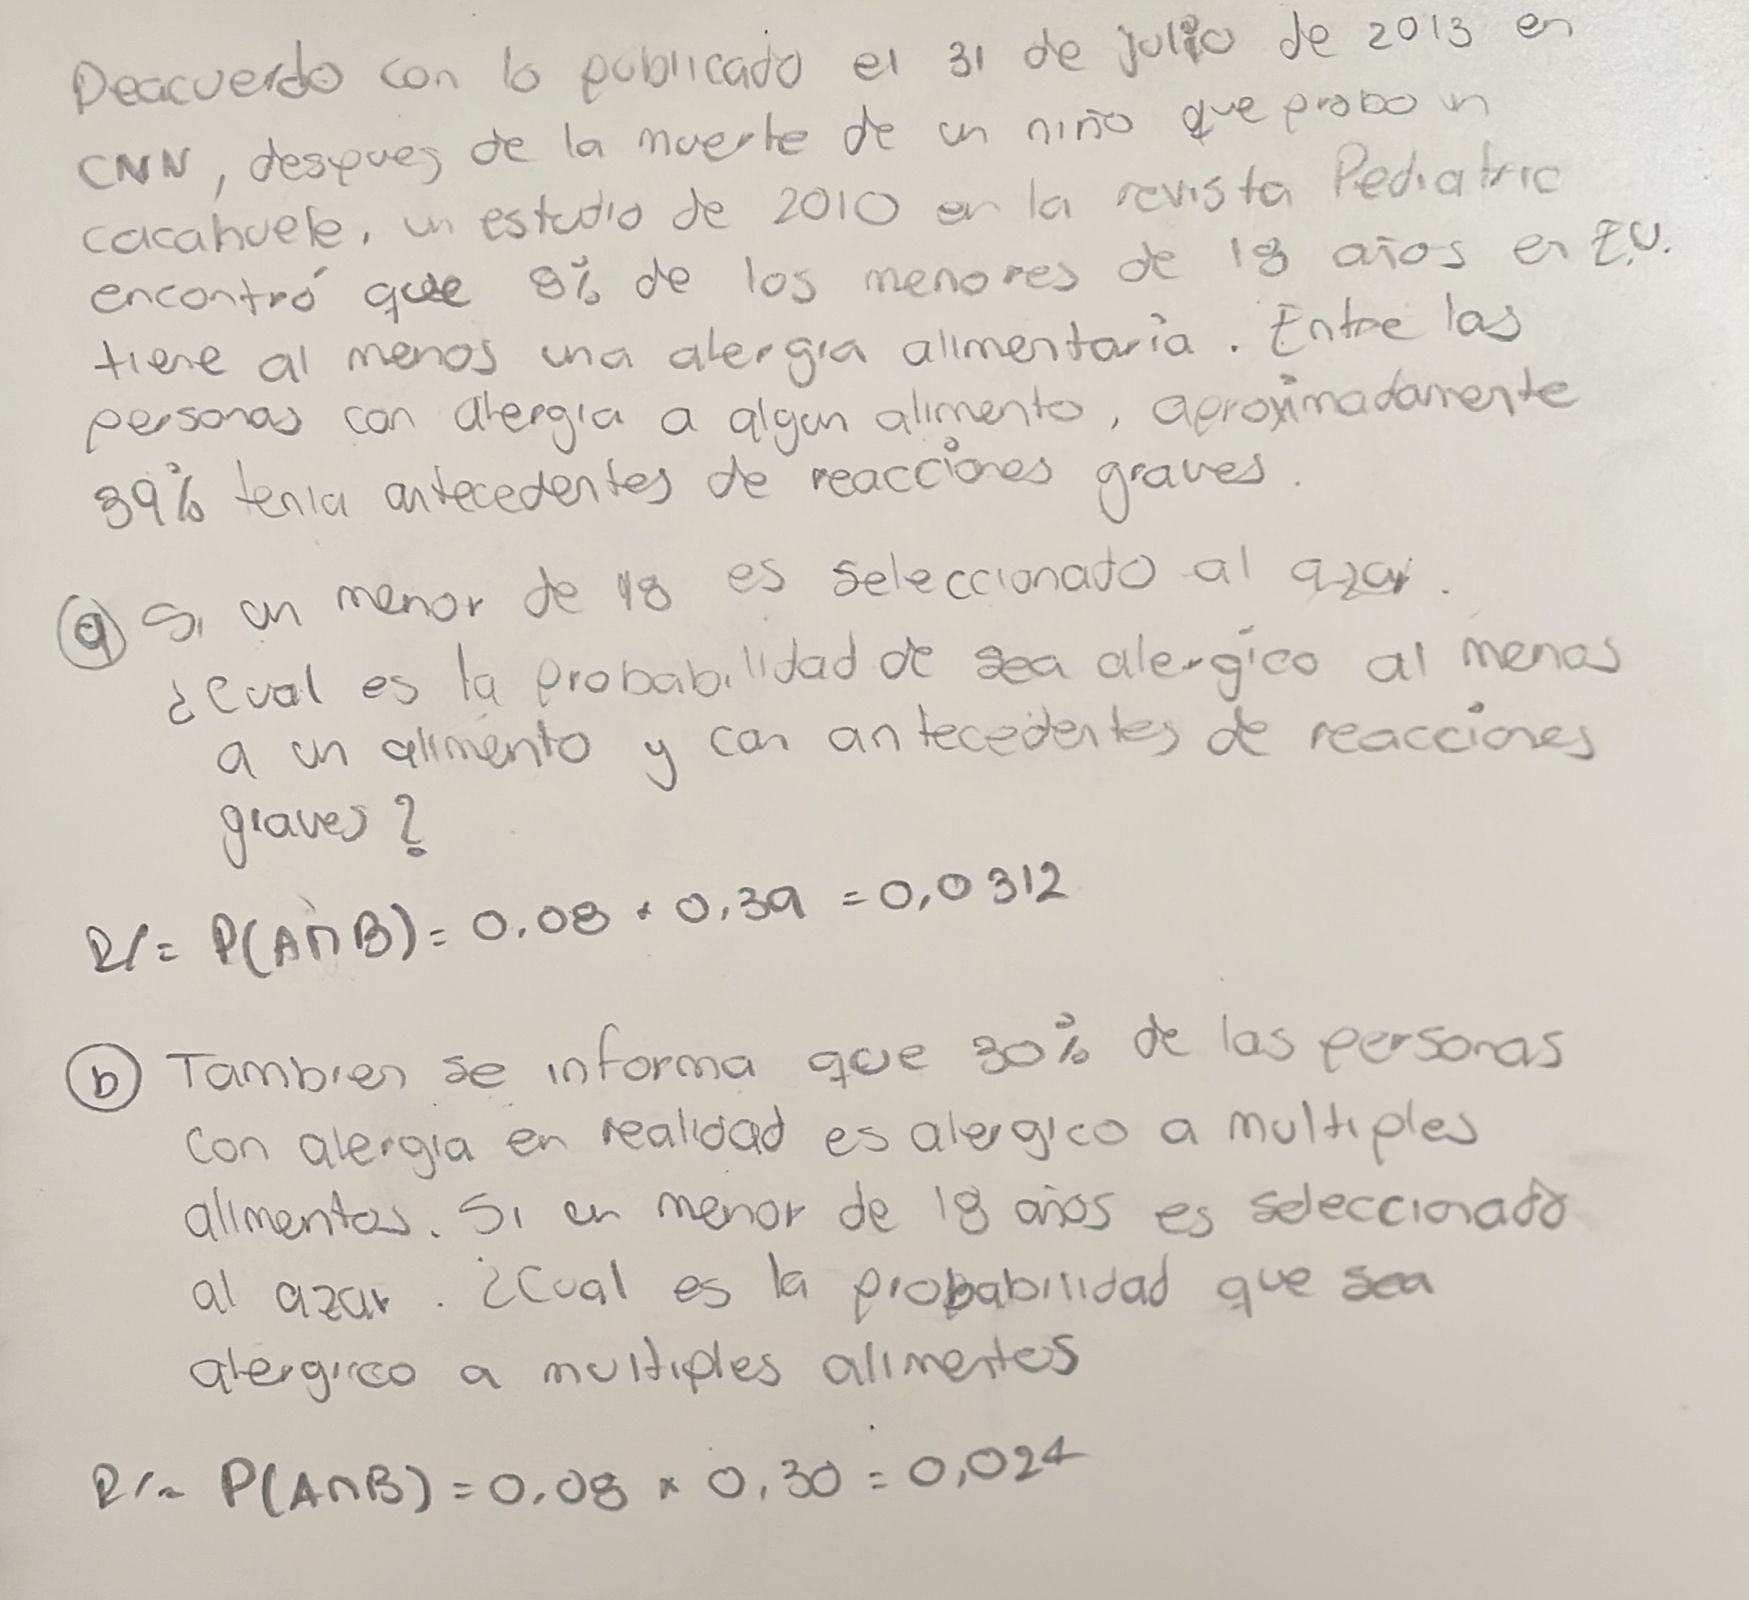 Deacuerdo con lo publicado el 31 de julio de 2013 en
CNN, despues de la muerte de un niño que probo un
cacahuete, un estudio de 2010 en la revista Pediatric
encontró que 8% de los menores de 18 años en E.U.
tiene al menos una alergia alimentaria. Entre las
personas con alergia a algun alimento, aproximadamente
39% tenia antecedentes de reacciones graves.
(a) Si un menor de 18 es seleccionado al azar.
¿Cual es la probabilidad de sea alergico al menos
a un alimento y con antecedentes de reacciones
graves?
R/= P(A∩B) = 0.08 * 0,39 = 0,0312
(b) Tambien se informa que 30% de las personas
con alergia en realidad es alergico a multiples
alimentos. Si un menor de 18 años es seleccionado
al azar. ¿Cual es la probabilidad que sea
alergico a multiples alimentos
R/= P(A∩B) = 0.08 x 0,30 = 0,024